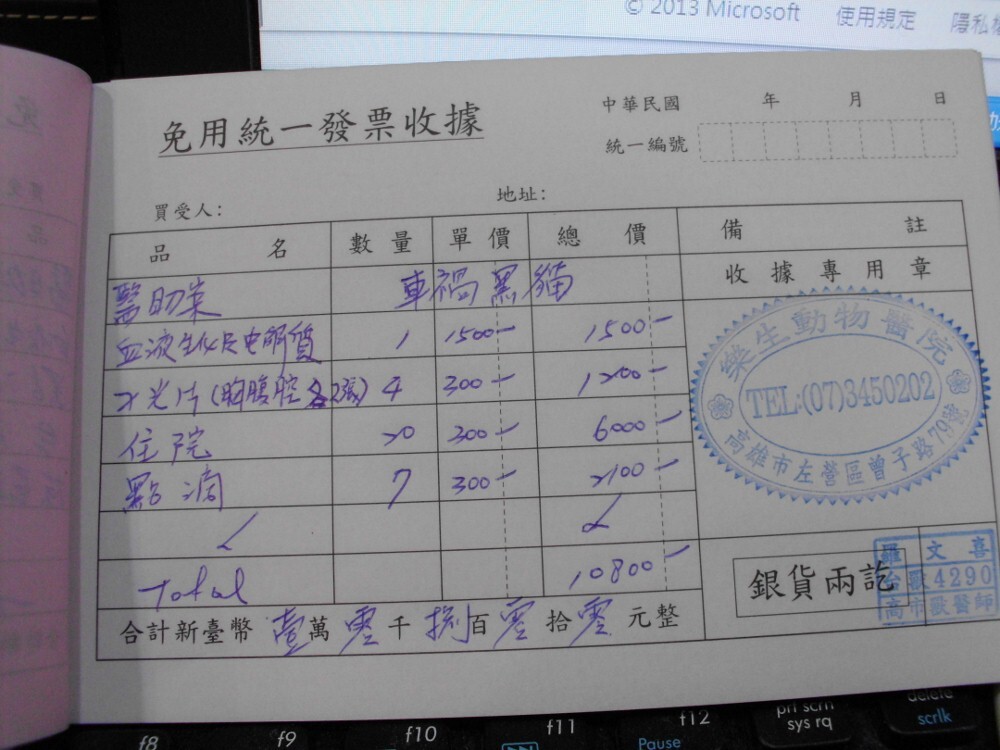 © 2013 Microsoft 使用規定 隱私
免用統一發票收據
中華民國 年 月 日
統一編號
買受人: 地址:
品名 數量 單價 總價 備註
收據專用章
醫助案 車禍黑貓
血液生化及电解質 1 1500- 1500-
X光片(胸腹腔各2張) 4 300- 1200-
住院 20 300- 6000-
點滴 7 300- 2100-
Total 10800-
合計新臺幣 壹萬零千捌百零拾零元整
樂生動物醫院
TEL:(07)3450202
高雄市左營區曾子路79號
銀貨兩訖
羅文喜
台獸4290
高市獸醫師
f8 f9 f10 f11 f12
Pause
prt scrn
sys rq
delete
scrlk